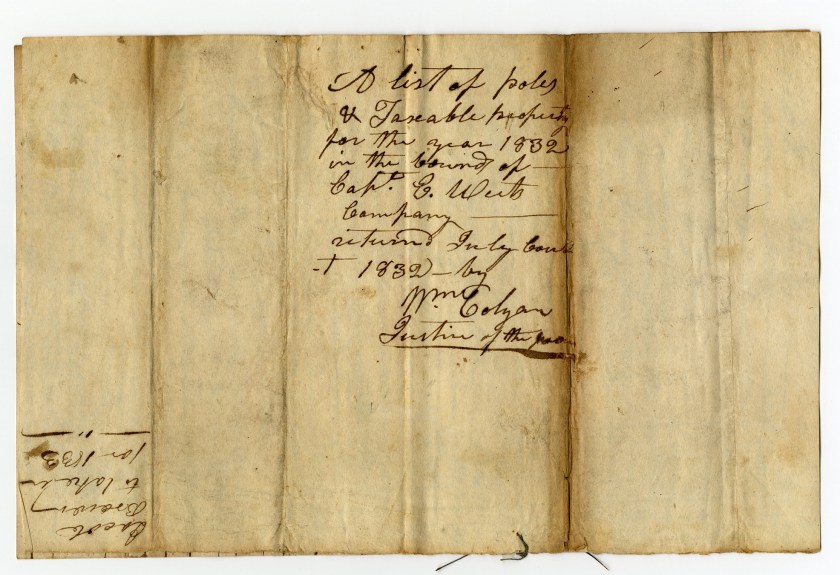 A list of poles
& Taxable property
for the year 1832
in the bounds of
Capt. E. Meets
Company
returned July Cour
-t 1832 - by
Wm. Colyar
Justice of the peace
Jacob
Brewer
to take in
for 1833